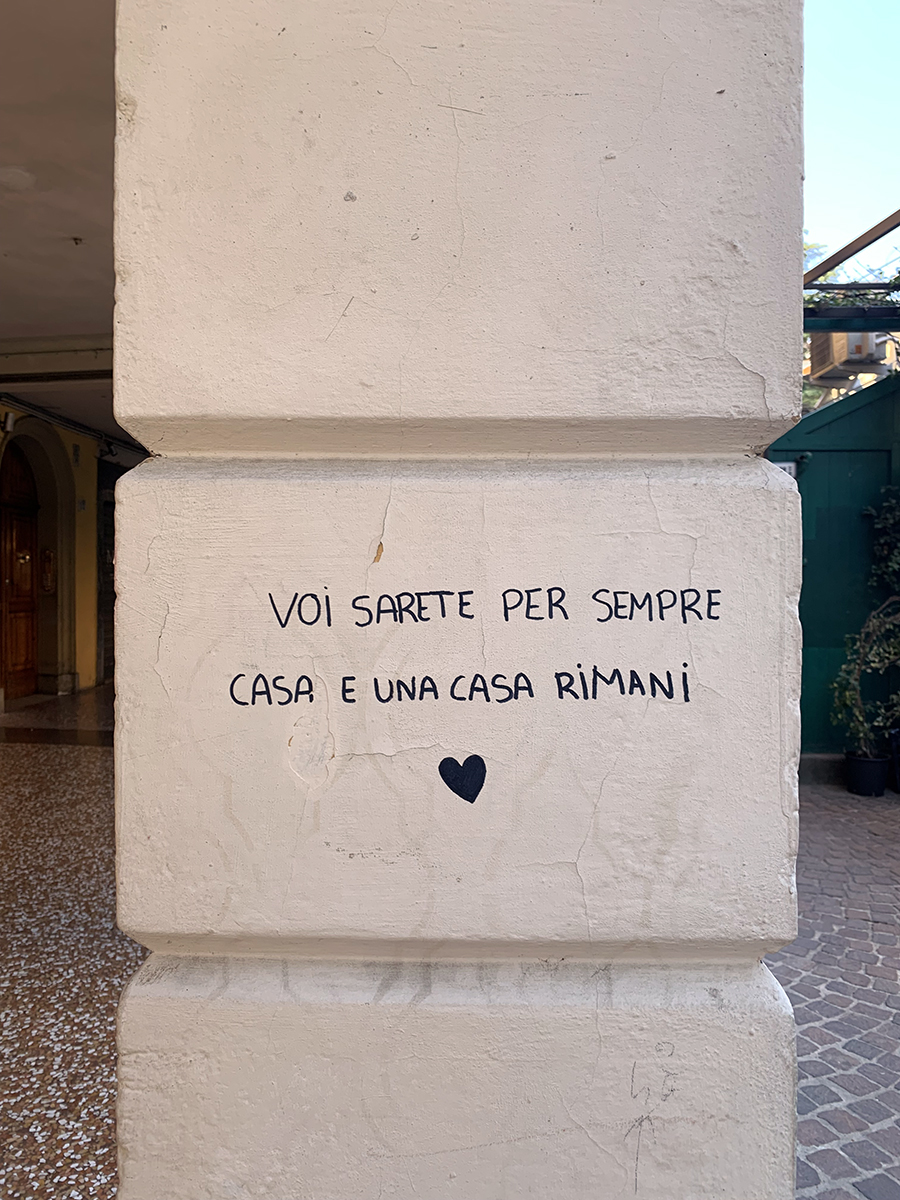 VOi SARETE PER SEMPRE
CASA E UNA CASA RiMANi